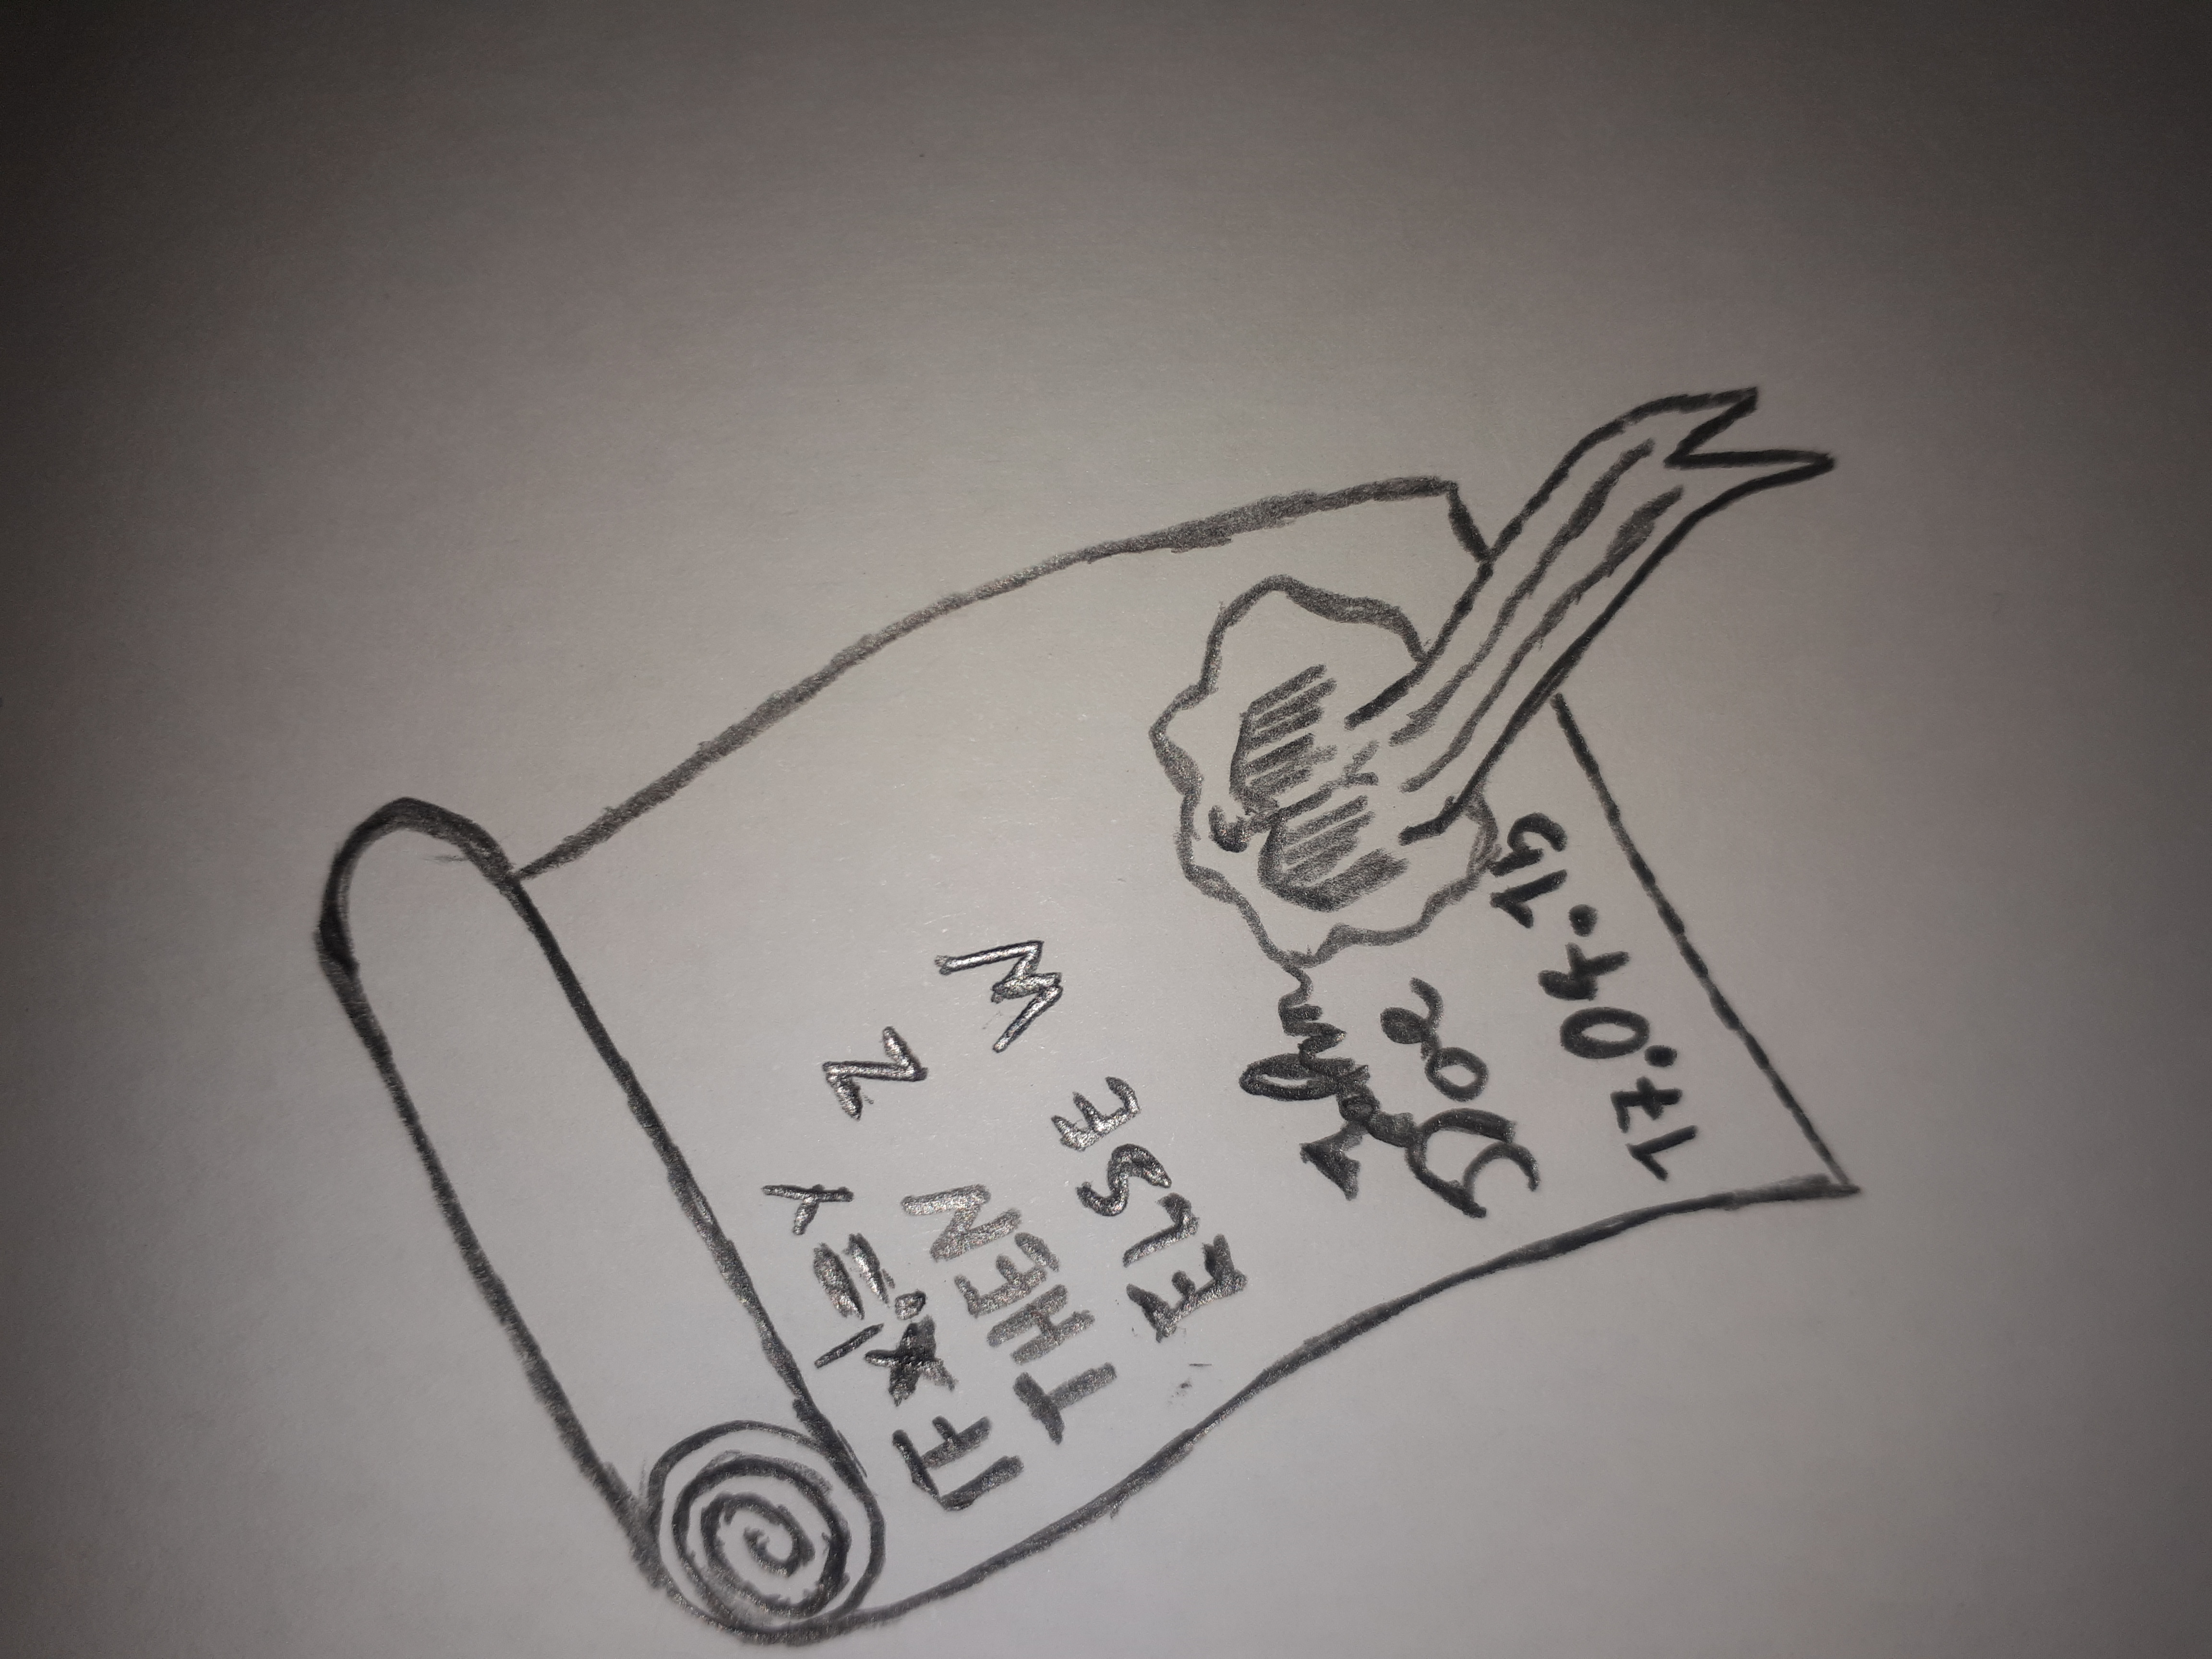 IF X != Y
THEN Z
ELSE W
John
Doe
17.04.15